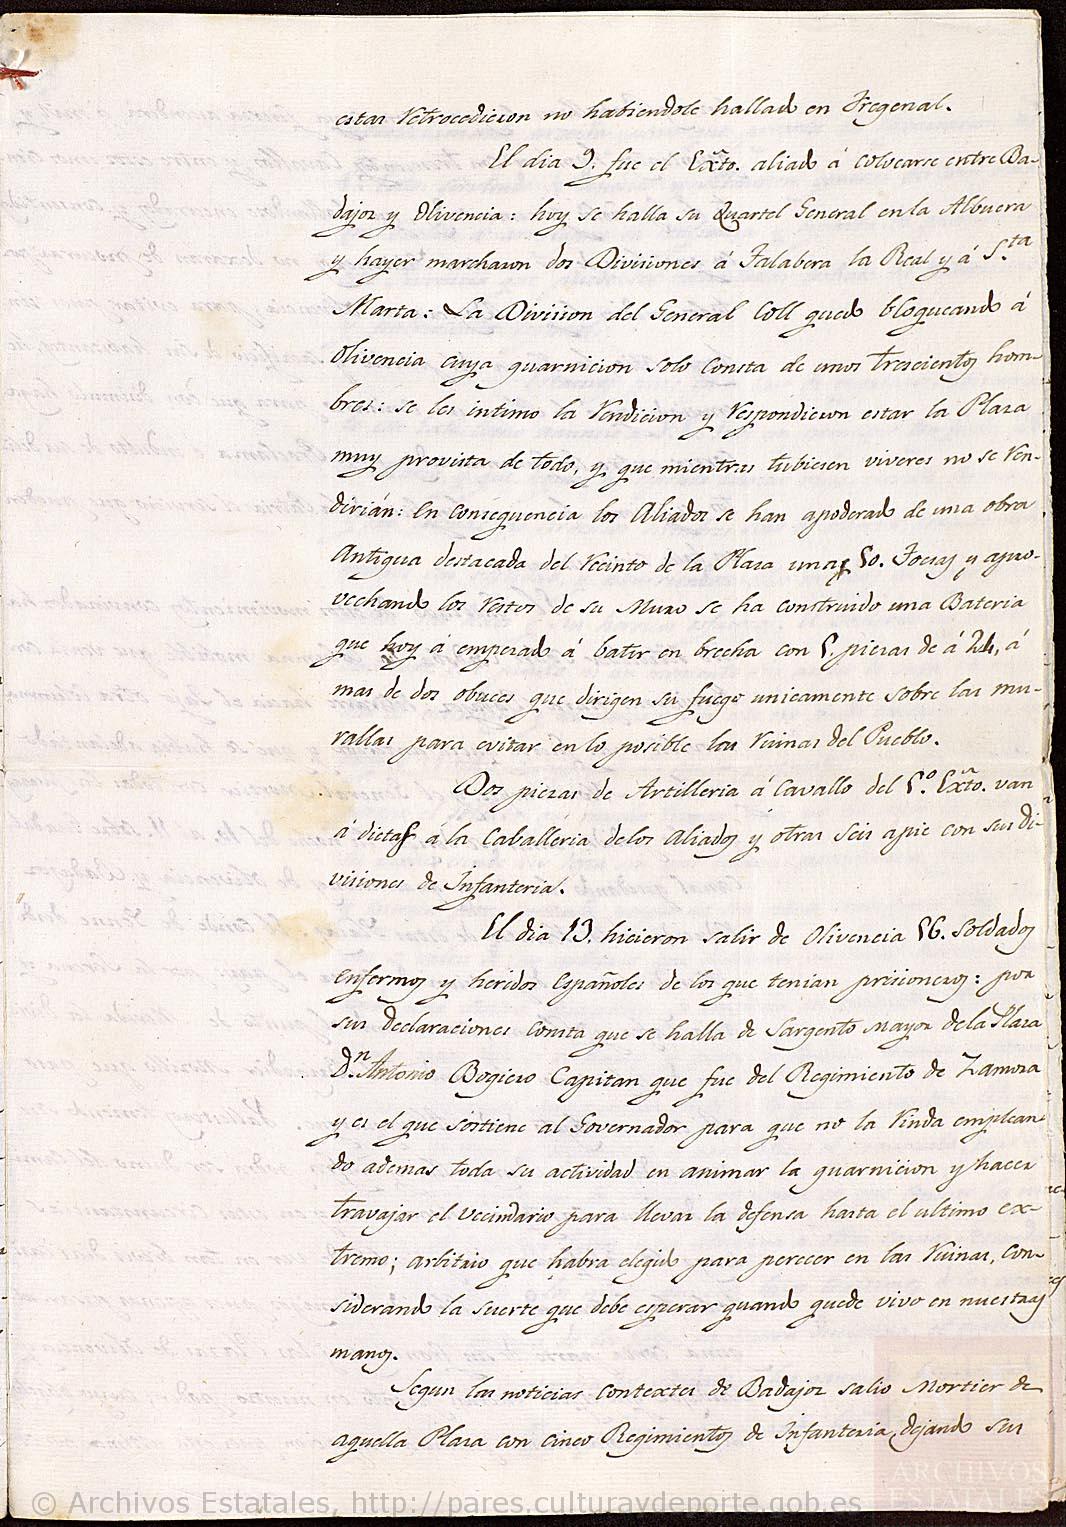 estas retrocedieron no habiendole hallado en Fregenal.
El dia 9. fue el Exto. aliado á colocarse entre Ba-
dajoz y Olivencia: hoy se halla su Quartel General en la Albuera
y hayer marcharon dos Divisiones á Talabera la Real y á Sta.
Marta: La Division del General Coll quedo bloqueando á
Olivencia cuya guarnicion solo consta de unos trescientos hom-
bres: se les intimo la rendicion y respondieron estar la Plaza
muy provista de todo, y que mientras tubiesen viveres no se ren-
dirián: en consequencia los Aliados se han apoderado de una obra
Antigua destacada del recinto de la Plaza unas 50. Toesas y apro-
vechando los restos de su Muro se ha construido una Bateria
que hoy á empezado á batir en brecha con 5. piezas de á 24, á
mas de dos obuces que dirigen su fuego unicamente sobre las mu-
rallas para evitar en lo posible las ruinas del Pueblo.
Dos piezas de Artilleria á Cavallo del 5º. Exto. van
á la Caballeria de los Aliados y otras seis apie con sus di-
visiones de Infanteria.
El dia 13. hicieron salir de Olivencia 56. soldados
enfermos y heridos españoles de los que tenian prisioneros: por
sus declaraciones consta que se halla de Sargento mayor de la Plaza
Dn. Antonio Bogiero Capitan que fue del Regimiento de Zamora
y es el que sostiene al Governador para que no la rinda emplean-
do ademas toda su actividad en animar la guarnicion y hacer
travajar el vecindario para llevar la defensa hasta el ultimo ex-
tremo; arbitrio que habra elegido para perecer en las ruinas, con-
siderando la suerte que debe esperar quando quede vivo en nuestras
manos.
Segun las noticias contextes de Badajoz salio Mortier de
aquella Plaza con cinco Regimientos de Infanteria, dejando sus
ARCHIVOS
ESTATALES
© Archivos Estatales, http://pares.culturaydeporte.gob.es